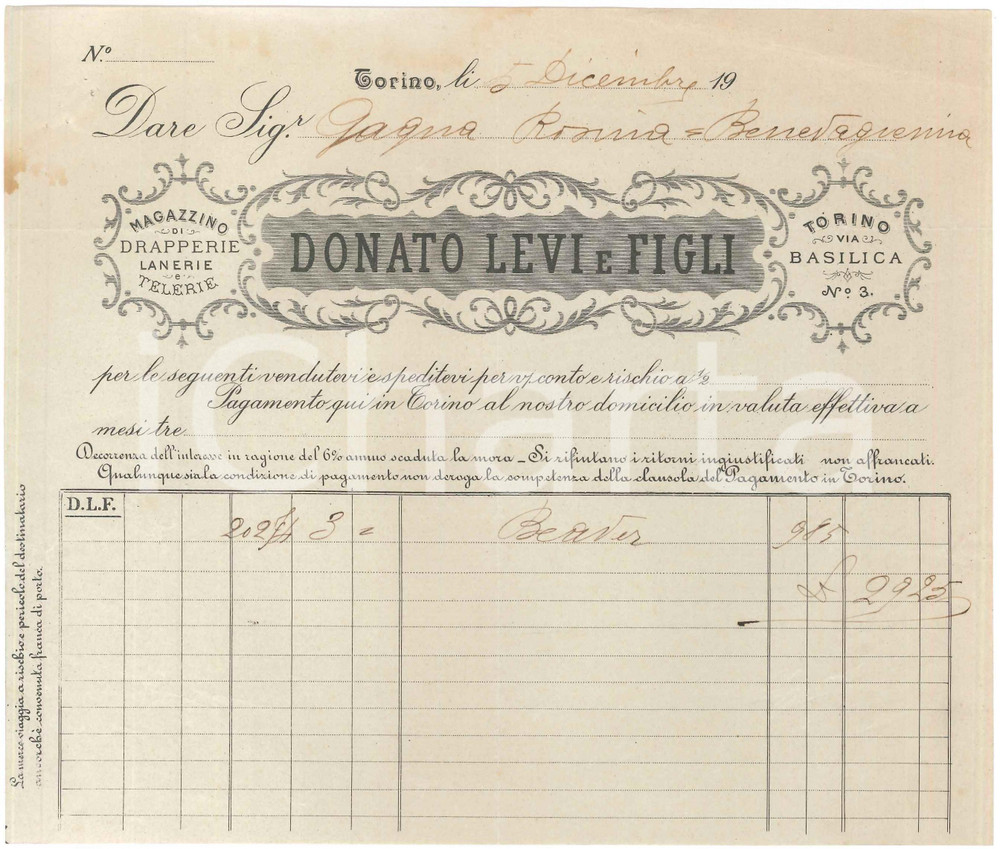 N.º
Torino, li 5 Dicembre 19
Dare Sig.r Gagna Rosina = Benevagienna
MAGAZZINO
DI
DRAPPERIE
LANERIE
e
TELERIE
DONATO LEVI E FIGLI
TORINO
VIA
BASILICA
Nº 3.
per le seguenti vendutevi e speditevi per v/ conto e rischio a ½
Pagamento qui in Torino al nostro domicilio in valuta effettiva a
mesi tre
Decorrenza dell'interesse in ragione del 6% annuo scaduta la mora _ Si rifiutano i ritorni ingiustificati non affrancati.
Qualunque sia la condizione di pagamento non deroga la competenza della clausola del Pagamento in Torino.
La merce viaggia a rischio e pericolo del destinatario
ancorchè convenuta franca di porto.
D.L.F.
3 = Beaver 985
£ 2925
iCharta